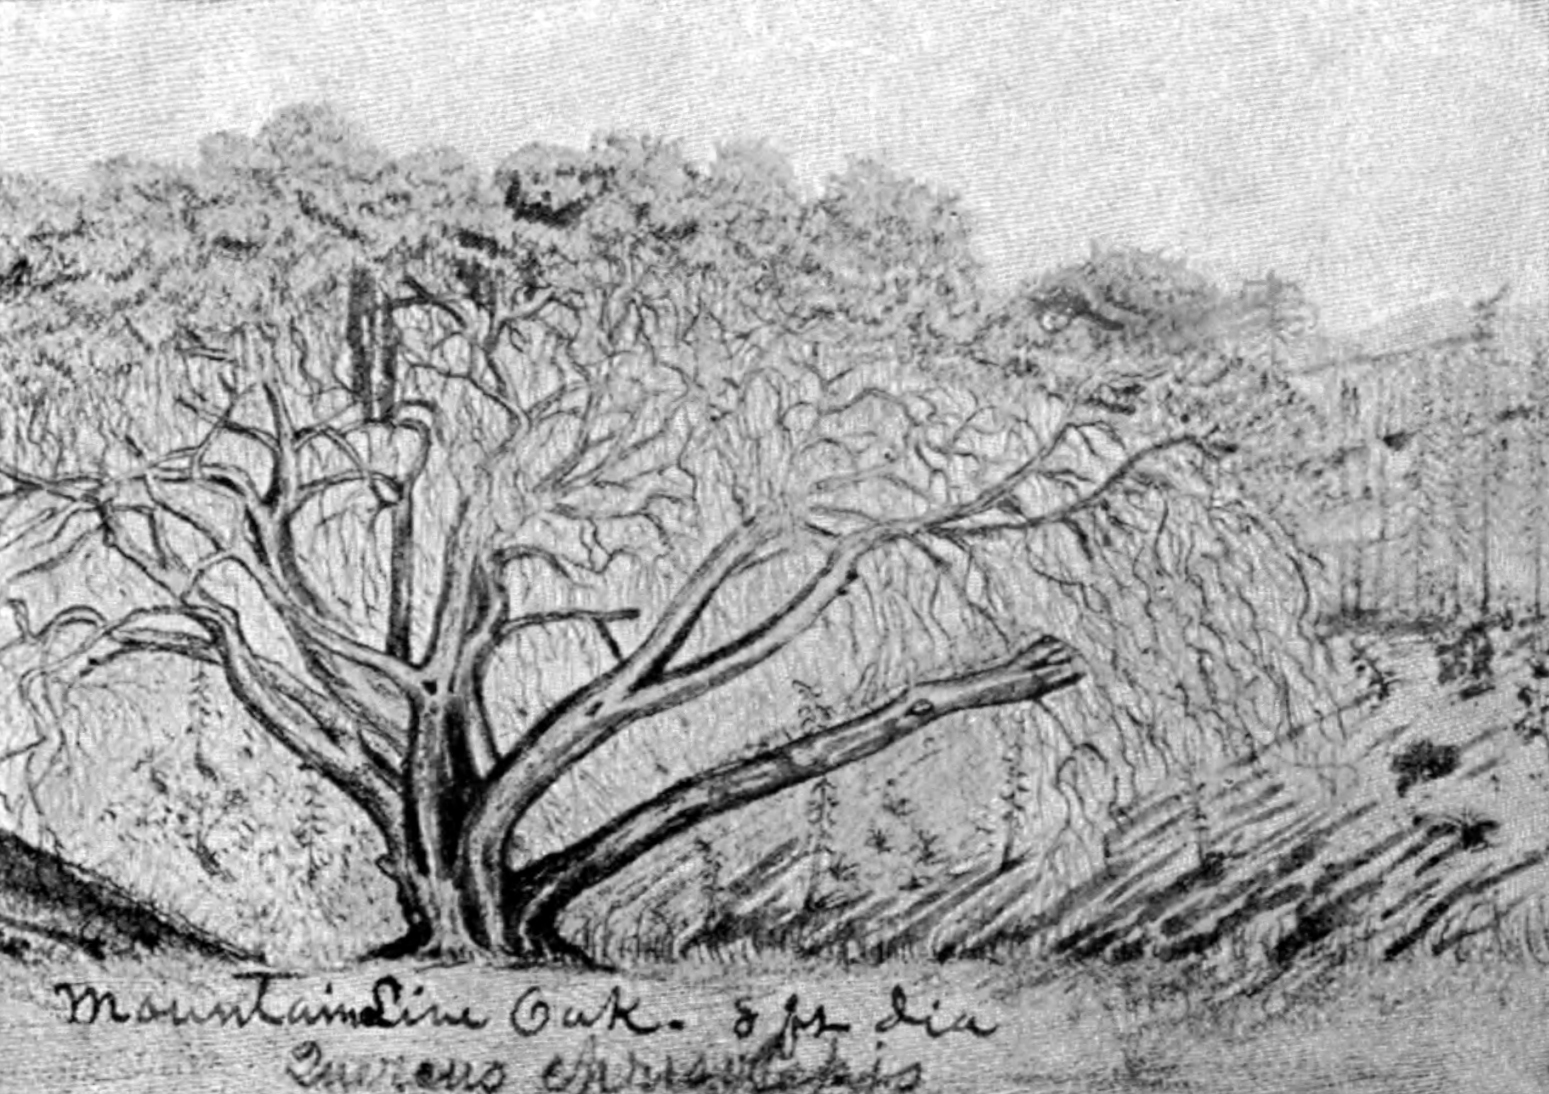 Mountain Live Oak. 8 ft dia
Quercus chrysolepis